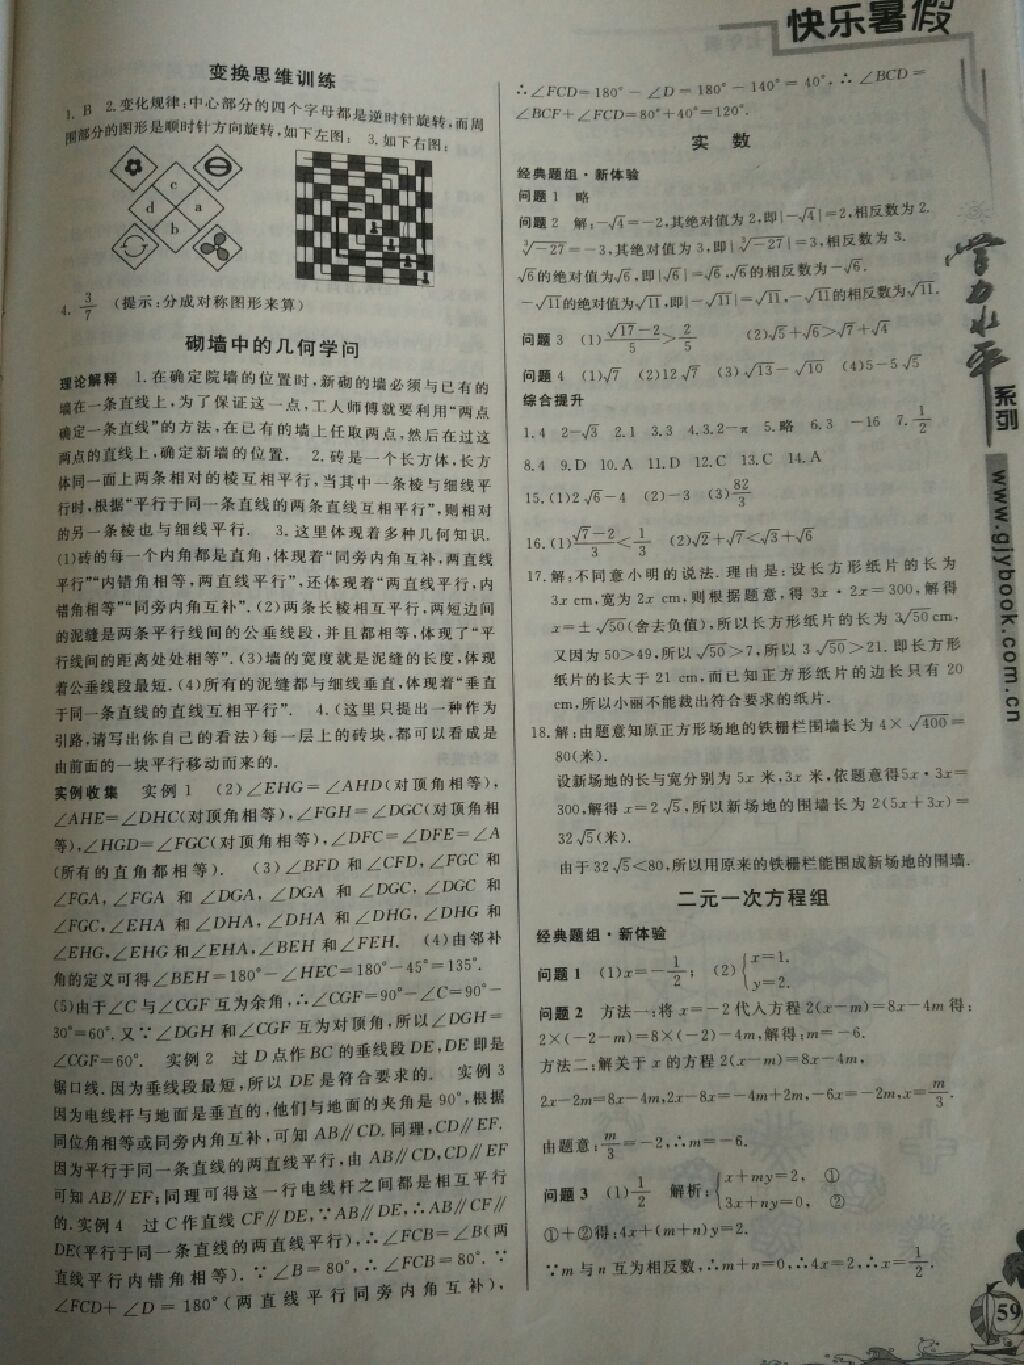 快乐暑假
变换思维训练
1. B 2. 变化规律:中心部分的四个字母都是逆时针旋转,而周
围部分的图形是顺时针方向旋转,如下左图; 3. 如下右图:
c
d a
b
4. 3/7 (提示:分成对称图形来算)
砌墙中的几何学问
理论解释 1. 在确定院墙的位置时,新砌的墙必须与已有的
墙在一条直线上,为了保证这一点,工人师傅就要利用“两点
确定一条直线”的方法,在已有的墙上任取两点,然后在过这
两点的直线上,确定新墙的位置. 2. 砖是一个长方体,长方
体同一面上两条相对的棱互相平行,当其中一条棱与细线平
行时,根据“平行于同一条直线的两条直线互相平行”,则相对
的另一条棱也与细线平行. 3. 这里体现着多种几何知识.
(1)砖的每一个内角都是直角,体现着“同旁内角互补,两直线
平行”“内错角相等,两直线平行”,还体现着“两直线平行,内
错角相等”“同旁内角互补”. (2)两条长棱相互平行,两短边间
的泥缝是两条平行线间的公垂线段,并且都相等,体现了“平
行线间的距离处处相等”. (3)墙的宽度就是泥缝的长度,体现
着公垂线段最短. (4)所有的泥缝都与细线垂直,体现着“垂直
于同一条直线的直线互相平行”. 4. (这里只提出一种作为
引路,请写出你自己的看法)每一层上的砖块,都可以看成是
由前面的一块平行移动而来的.
实例收集 实例 1 (2)∠EHG=∠AHD(对顶角相等),
∠AHE=∠DHC(对顶角相等),∠FGH=∠DGC(对顶角相
等),∠HGD=∠FGC(对顶角相等),∠DFC=∠DFE=∠A
(所有的直角都相等). (3)∠BFD 和∠CFD,∠FGC 和
∠FGA,∠FGA 和 ∠DGA,∠DGA 和 ∠DGC,∠DGC 和
∠FGC,∠EHA 和∠DHA,∠DHA 和∠DHG,∠DHG 和
∠EHG,∠EHG 和∠EHA,∠BEH 和∠FEH. (4)由邻补
角的定义可得∠BEH=180°-∠HEC=180°-45°=135°.
(5)由于∠C 与∠CGF 互为余角,∴∠CGF=90°-∠C=90°-
30°=60°. 又∵∠DGH 和∠CGF 互为对顶角,所以∠DGH=
∠CGF=60°. 实例 2 过 D 点作 BC 的垂线段 DE,DE 即是
锯口线. 因为垂线段最短,所以 DE 是符合要求的. 实例 3
因为电线杆与地面是垂直的,他们与地面的夹角是 90°,根据
同位角相等或同旁内角互补,可知 AB∥CD. 同理,CD∥EF.
因为平行于同一条直线的两直线平行,由 AB∥CD,CD∥EF
可知 AB∥EF;同理可得这一行电线杆之间都是相互平行
的. 实例 4 过 C 作直线 CF∥DE,∵AB∥DE,∴AB∥CF∥
DE(平行于同一条直线的两直线平行),∴∠FCB=∠B(两
直线平行内错角相等). ∵∠B=80°,∴∠FCB=80°. ∵
∠FCD+∠D=180°(两直线平行同旁内角互补),
∴∠FCD=180°-∠D=180°-140°=40°,∴∠BCD=
∠BCF+∠FCD=80°+40°=120°.
实 数
经典题组·新体验
问题 1 略
问题 2 解:-√4=-2,其绝对值为 2,即|-√4|=2,相反数为 2.
∛-27=-3,其绝对值为 3,即|∛-27|=3,相反数为 3.
√6的绝对值为√6,即|√6|=√6,√6的相反数为-√6.
-√11的绝对值为√11,即|-√11|=√11,-√11的相反数为√11.
问题 3 (1)(√17-2)/5>2/5 (2)√5+√6>√7+√4
问题 4 (1)√7 (2)12√7 (3)√13-√10 (4)5-5√5
综合提升
1. 4 2-√3 2. 1 3. 3 4. 3. 2-π 5. 略 6. 3 -16 7. 1/2
8. 4 9. D 10. A 11. D 12. C 13. C 14. A
15. (1)2√6-4 (2)-3 (3)82/3
16. (1)(√7-2)/3<1/3 (2)√2+√7<√3+√6
17. 解:不同意小明的说法. 理由是:设长方形纸片的长为
3x cm,宽为 2x cm,则根据题意,得 3x·2x=300,解得
x=±√50(舍去负值),所以长方形纸片的长为 3√50 cm,
又因为 50>49,所以√50>7,所以 3√50>21. 即长方形
纸片的长大于 21 cm,而已知正方形纸片的边长只有 20
cm,所以小丽不能裁出符合要求的纸片.
18. 解:由题意知原正方形场地的铁栅栏围墙长为 4×√400=
80(米).
设新场地的长与宽分别为 5x 米,3x 米,依题意得5x·3x=
300,解得 x=2√5,所以新场地的围墙长为 2(5x+3x)=
32√5(米).
由于 32√5<80,所以用原来的铁栅栏能围成新场地的围墙.
二元一次方程组
经典题组·新体验
问题 1 (1)x=-1/2; (2){x=1, y=2.
问题 2 方法一:将 x=-2 代入方程 2(x-m)=8x-4m 得:
2×(-2-m)=8×(-2)-4m,解得:m=-6.
方法二:解关于 x 的方程 2(x-m)=8x-4m,
2x-2m=8x-4m,2x-8x=-4m+2m,-6x=-2m,x=m/3.
由题意:m/3=-2,∴m=-6.
问题 3 (1)1/2 解析:{x+my=2, ① 3x+ny=0, ②
①+②得:4x+(m+n)y=2.
∵m 与 n 互为相反数,∴m+n=0,∴4x=2,∴x=1/2.
学力水平
系列
www.qlybook.com.cn
59